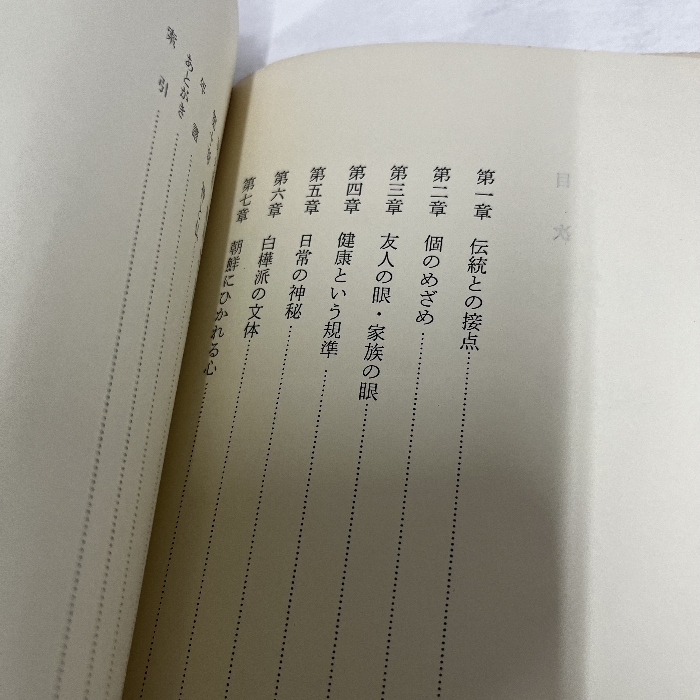 目次
第一章 伝統との接点
第二章 個のめざめ
第三章 友人の眼・家族の眼
第四章 健康という規準
第五章 日常の神秘
第六章 白樺派の文体
第七章 朝鮮にひかれる心
年譜
あとがき
索引